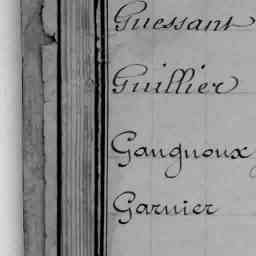 Guessant
Guillier
Gangnoux
Garnier